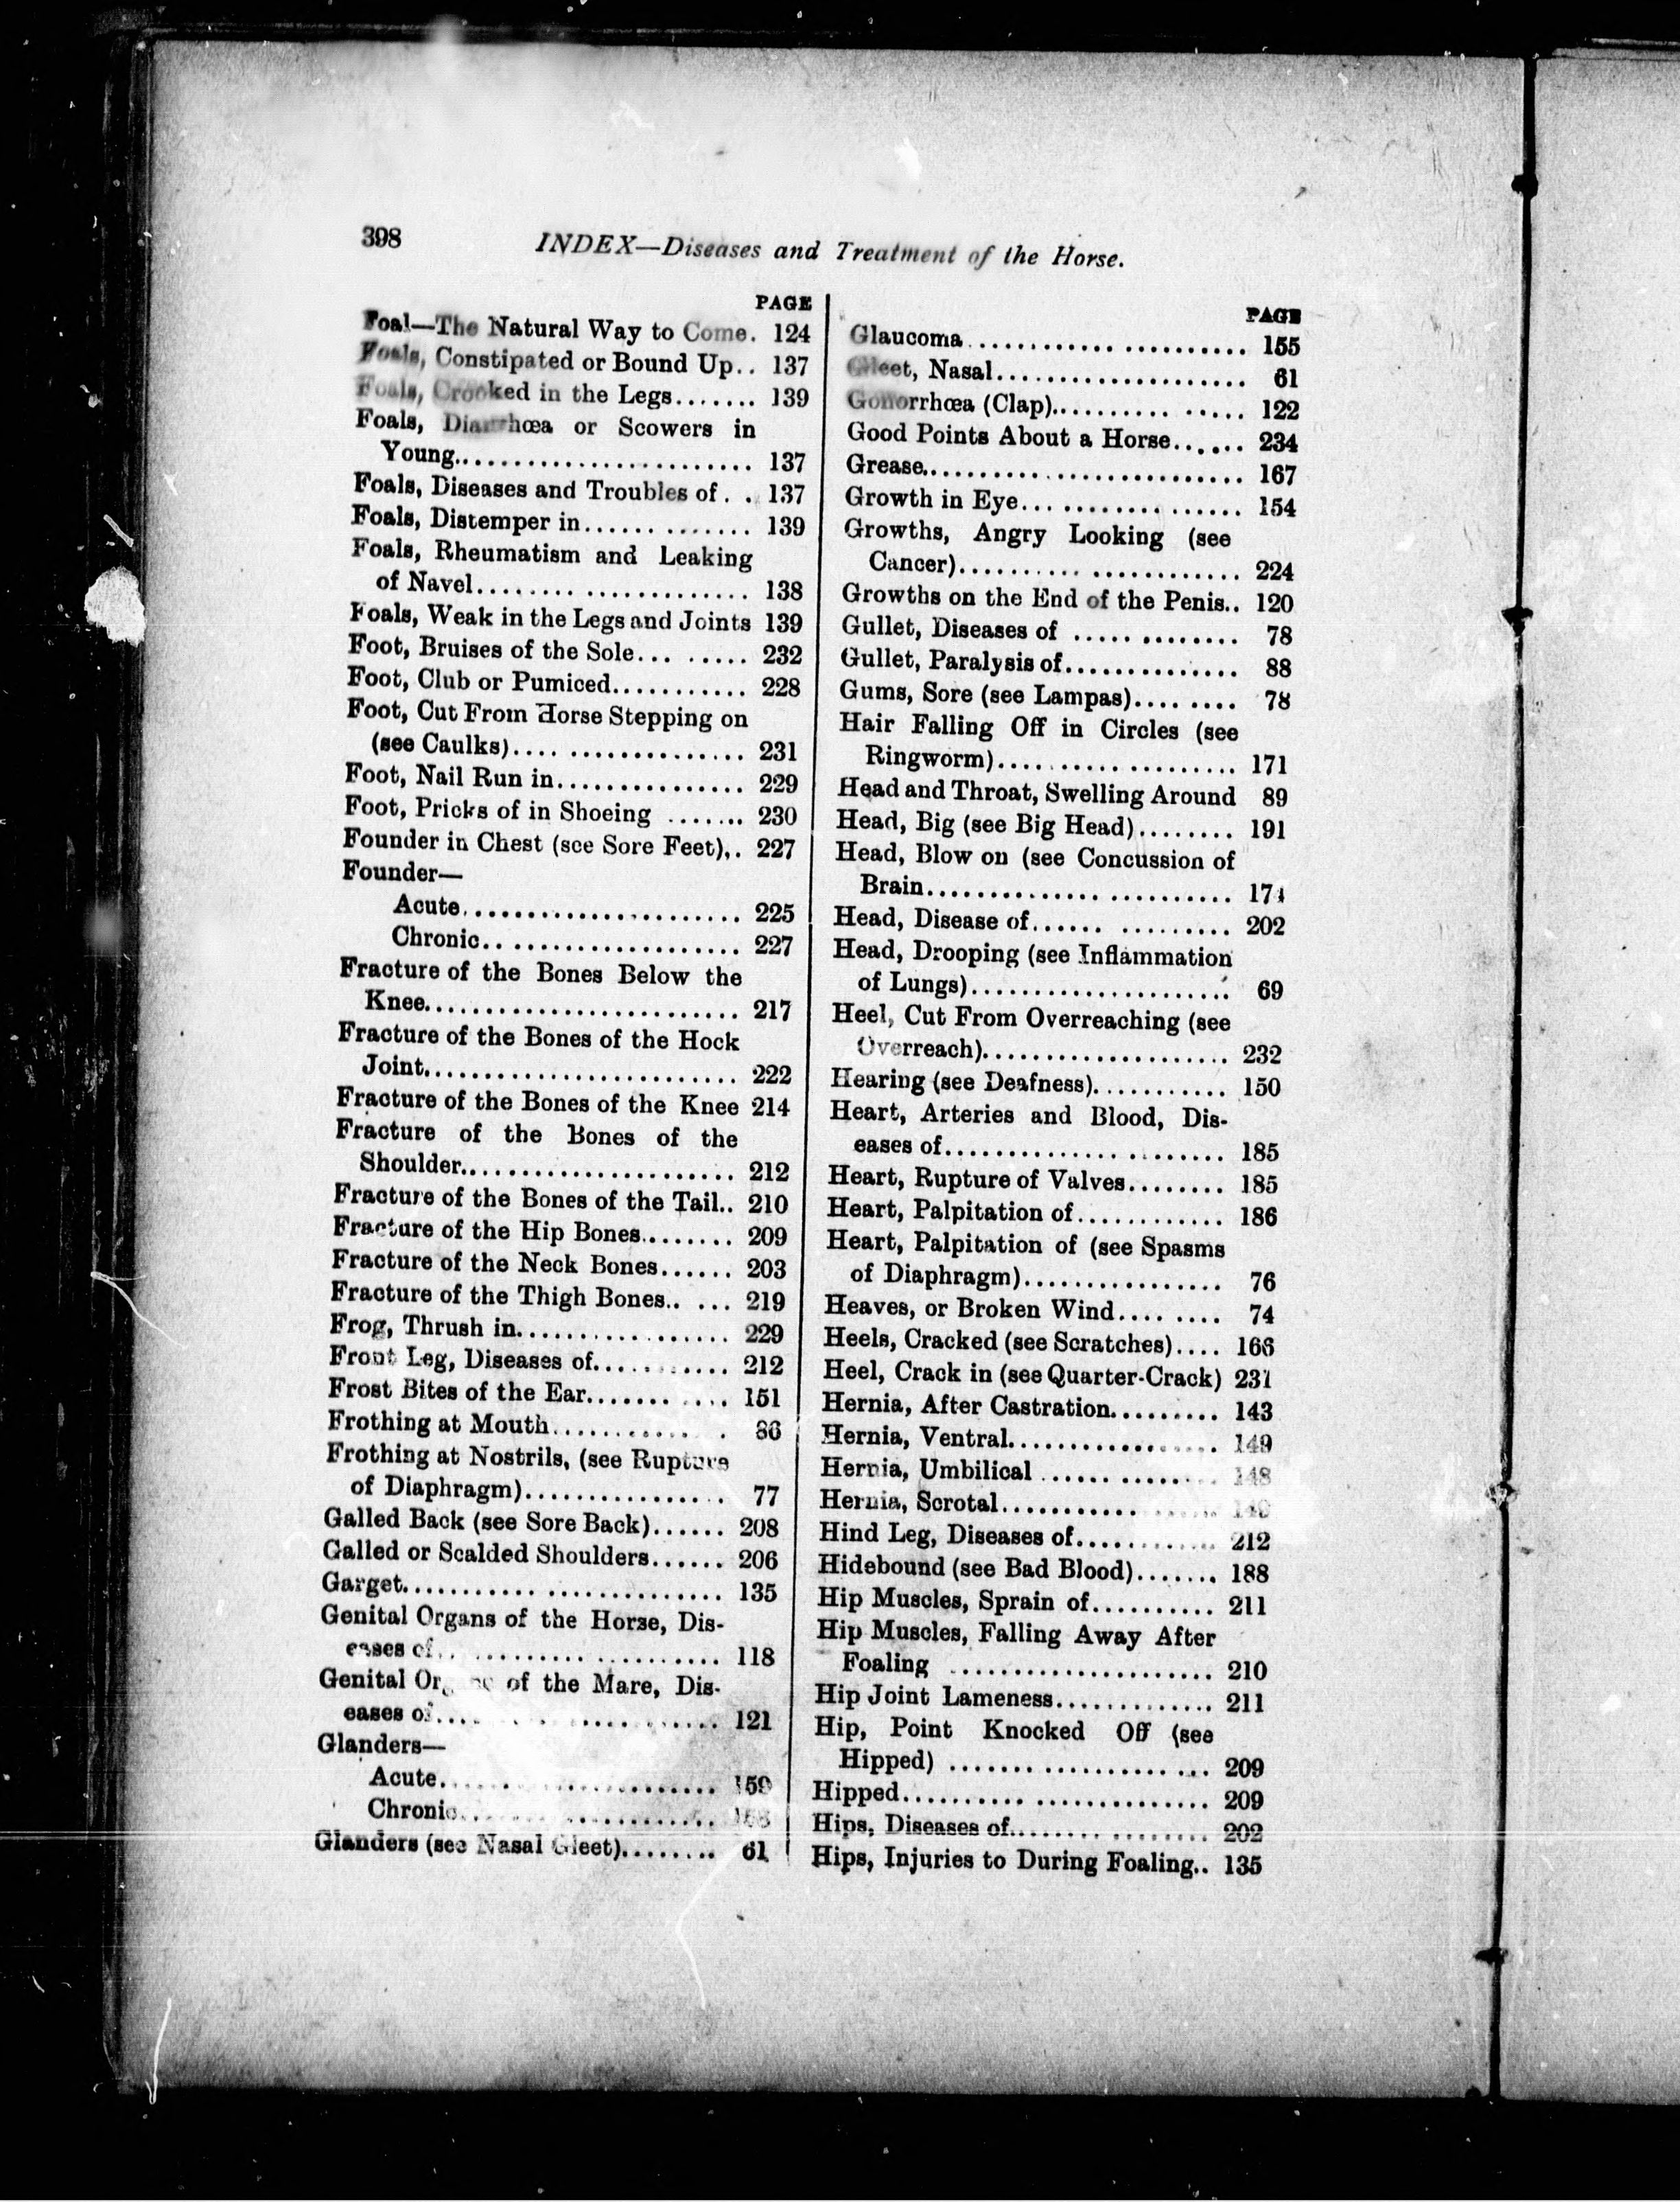 398 INDEX—Diseases and Treatment of the Horse.
PAGE
Foal—The Natural Way to Come. 124
Foals, Constipated or Bound Up.. 137
Foals, Crooked in the Legs....... 139
Foals, Diarrhœa or Scowers in
Young.......................... 137
Foals, Diseases and Troubles of . . 137
Foals, Distemper in...... ........ 139
Foals, Rheumatism and Leaking
of Navel........................ 138
Foals, Weak in the Legs and Joints 139
Foot, Bruises of the Sole... ...... 232
Foot, Club or Pumiced........... 228
Foot, Cut From Horse Stepping on
(see Caulks).... ................ 231
Foot, Nail Run in................ 229
Foot, Pricks of in Shoeing ....... 230
Founder in Chest (see Sore Feet),. 227
Founder—
Acute........................ 225
Chronic.. ................... 227
Fracture of the Bones Below the
Knee........................... 217
Fracture of the Bones of the Hock
Joint........................... 222
Fracture of the Bones of the Knee 214
Fracture of the Bones of the
Shoulder....................... 212
Fracture of the Bones of the Tail.. 210
Fracture of the Hip Bones........ 209
Fracture of the Neck Bones...... 203
Fracture of the Thigh Bones.. ... 219
Frog, Thrush in.................. 229
Front Leg, Diseases of............ 212
Frost Bites of the Ear............ 151
Frothing at Mouth............ .
Frothing at Nostrils, (see Rupture
of Diaphragm)................. 77
Galled Back (see Sore Back)...... 208
Galled or Scalded Shoulders...... 206
Garget........... ............... 135
Genital Organs of the Horse, Dis-
eases of............. ........... 118
Genital Organs of the Mare, Dis-
eases of........................ 121
Glanders—
Acute........................ 159
Chronic......................
Glanders (see Nasal Gleet)........ 61
PAGE
Glaucoma............. ........... 155
Gleet, Nasal...................... 61
Gonorrhœa (Clap)........... ..... 122
Good Points About a Horse...... 234
Grease........................... 167
Growth in Eye............ ...... 154
Growths, Angry Looking (see
Cancer)........... ............. 224
Growths on the End of the Penis.. 120
Gullet, Diseases of ..... ........ 78
Gullet, Paralysis of............... 88
Gums, Sore (see Lampas).... .... 78
Hair Falling Off in Circles (see
Ringworm)..................... 171
Head and Throat, Swelling Around 89
Head, Big (see Big Head)........ 191
Head, Blow on (see Concussion of
Brain.......................... 174
Head, Disease of...... .......... 202
Head, Drooping (see Inflammation
of Lungs)...................... 69
Heel, Cut From Overreaching (see
Overreach)..................... 232
Hearing (see Deafness)............ 150
Heart, Arteries and Blood, Dis-
eases of............... ......... 185
Heart, Rupture of Valves........ 185
Heart, Palpitation of............. 186
Heart, Palpitation of (see Spasms
of Diaphragm)................. 76
Heaves, or Broken Wind.... .... 74
Heels, Cracked (see Scratches).... 166
Heel, Crack in (see Quarter-Crack) 231
Hernia, After Castration......... 143
Hernia, Ventral.................. 149
Hernia, Umbilical ...... ........ 148
Hernia, Scrotal...................
Hind Leg, Diseases of............ 212
Hidebound (see Bad Blood)....... 188
Hip Muscles, Sprain of........... 211
Hip Muscles, Falling Away After
Foaling ....................... 210
Hip Joint Lameness.............. 211
Hip, Point Knocked Off (see
Hipped) ....................... 209
Hipped.......... ............... 209
Hips, Diseases of........ ........ 202
Hips, Injuries to During Foaling.. 135